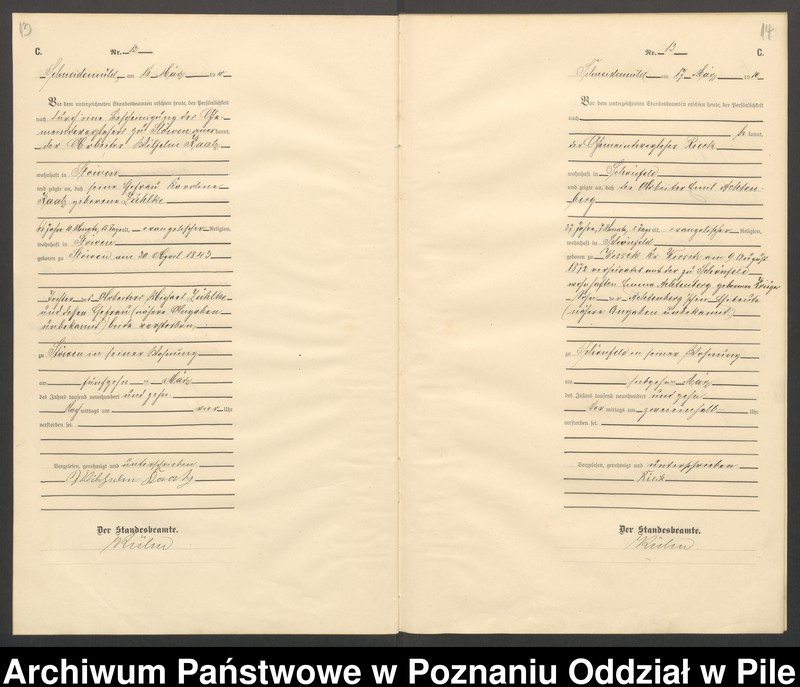 13
C.
Nr. 12
Schneidemühl, am 16 März 1910
Vor dem unterzeichneten Standesbeamten erschien heute, der Persönlichkeit
nach durch eine Bescheinigung der Ge-
meindevorstehers zu Stöwen anerkannt,
der Arbeiter Wilhelm Raatz
wohnhaft in Stöwen
und zeigte an, daß seine Ehefrau Karoline
Raatz geborene Zühlke
66 Jahre 10 Monate, alt, evangelischer Religion,
wohnhaft in Stöwen
geboren zu Stöwen am 20 April 1843
Tochter des Arbeiters Michael Zühlke
und dessen Ehefrau (nähere Angaben
unbekannt) beide verstorben
zu Stöwen in seiner Wohnung
am fünfzehn ten März
des Jahres tausend neunhundert und zehn
Nachmittags um vier Uhr
verstorben sei.
Vorgelesen, genehmigt und unterschrieben
Wilhelm Raatz
Der Standesbeamte.
Kühn
14
Nr. 13
C.
Schneidemühl am 17 März 1910
Vor dem unterzeichneten Standesbeamten erschien heute, der Persönlichkeit
nach
bekannt,
der Gemeindevorsteher
wohnhaft in Schönfeld
und zeigte an, daß der Arbeiter Emil Achten-
berg
37 Jahre, 7 Monate, 8 Tage alt, evangelischer Religion,
wohnhaft in Schönfeld
geboren zu Kr. Wirsitz am 9 August
1872 verheiratet mit der zu Schönfeld
wohnhaften Emma Achtenberg geborenen Krüger
Sohn der Achtenberg'schen Eheleute
(nähere Angaben unbekannt)
zu Schönfeld in seiner Wohnung
am siebzehn ten März
des Jahres tausend neunhundert und zehn
Vormittags um zweieinhalb Uhr
verstorben sei.
Vorgelesen, genehmigt und unterschrieben
Der Standesbeamte.
Kühn
Archiwum Państwowe w Poznaniu Oddział w Pile